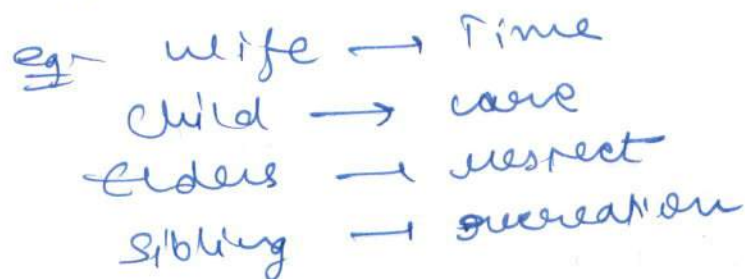 eg- wife → Time
child → care
Elders → respect
sibling → recreation